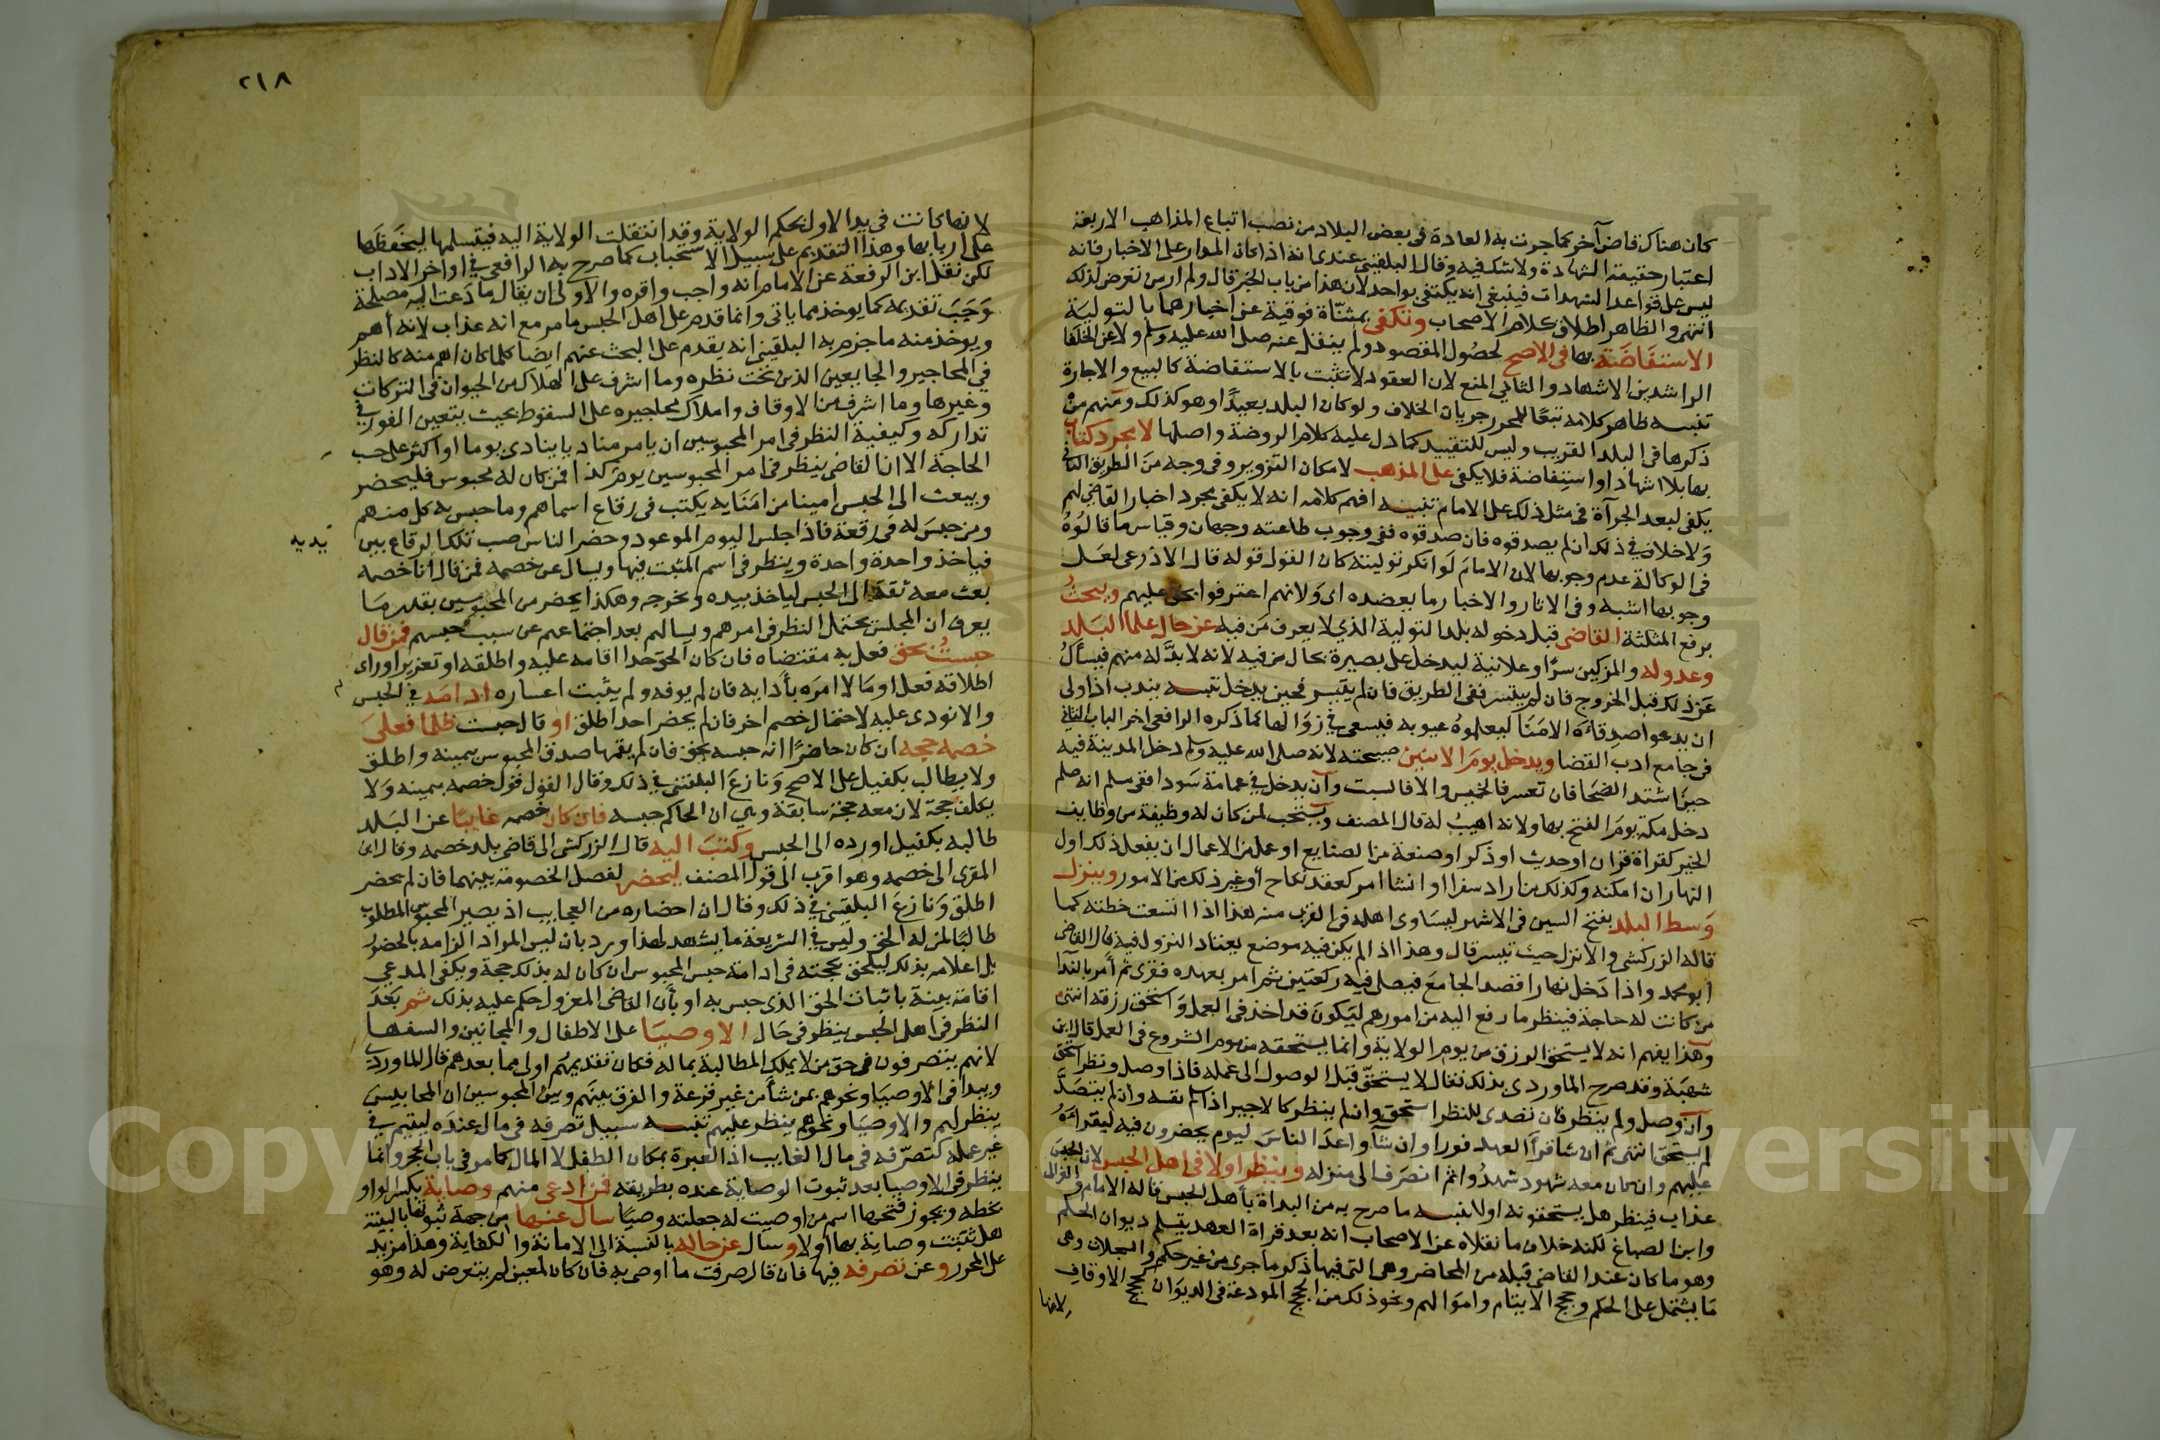 كان هناك قاض آخر كما جرت به العادة فى بعض البلاد من نصب اتباع المذاهب الاربعة
اعتبار حقيقة الشهادة ولا شك فيه وقال البلقينى عندى انه اذا كان المدار على الاخبار فانه
ليس على قواعد الشهدات فينبغى انه يكتفى بواحد لان هذا من باب الخبر قال ولم ار من تعرض لذلك
انتهى والظاهر اطلاق كلام الاصحاب وتكفى بمثناة فوقية عن اخبارهما بالتولية
الاستفاضة بها فى الاصح لحصول المقصود ولم ينقل عنه صلى الله عليه وسلم ولا عن الخلفا
الراشدين الاشهاد والثانى المنع لان العقود لا تثبت بالاستفاضة كالبيع والاجارة
تنبيه ظاهر كلامه تبعا للمحرر جريان الخلاف ولو كان البلد بعيدا وهو كذلك ومنهم من
ذكرها فى البلد القريب وليس للتقييد كما دل عليه كلام الروضة واصلها لا بمجرد كتاب
بها بلا اشهاد او استفاضة فلا يكفى على المذهب لامكان التزوير وفى وجه من الطريق الثانى
يكفى لبعد الجرآة فى مثل ذلك على الامام تنبيه افهم كلامه انه لا يكفى مجرد اخبار القاضى لهم
ولا خلاف فى ذلك ان لم يصدقوه فان صدقوه ففى وجوب طاعته وجهان وقياس ما قالوه
فى الوكالة عدم وجوبها لان الامام لو انكر توليته كان القول قوله قال الاذرعى لعل
وجوبها اشبه وفى الاثار والاخبار ما يعضده اى ولانهم اعترفوا بحق عليهم ويبحث
برفع المثلثة القاضى قبل دخوله بلد التولية الذى لا يعرف من فيه عن حال علما البلد
وعدوله والمزكين سرا وعلانية ليدخل على بصيرة بحال من فيه لانه لا بد له منهم فيسأل
عن ذلك قبل الخروج فان لم يتيسر ففى الطريق فان لم يتيسر فحين يدخل تنبيه يندب اذا ولى
ان يدعو اصدقاءه الامنا ليعلموه عيوبه فيسعى فى زوالها كما ذكره الرافعى اخر الباب الثانى
فى جامع ادب القضا ويدخل يوم الاثنين صبيحته لانه صلى الله عليه وسلم دخل المدينة فيه
حين اشتد الضحا فان تعسر فالخميس والا فالسبت وان يدخل فى عمامة سودا ففى مسلم انه صلم
دخل مكة يوم الفتح بها ولانه اهيب له قال المصنف ويستحب لمن كان له وظيفة من وظايف
الخير كقراة قران او حديث او ذكر او صنعة من الصنايع او عمل من الاعمال ان يفعل ذلك اول
النهار ان امكنه وكذلك من اراد سفرا او انشا امر كعقد نكاح او غير ذلك من الامور وينزل
وسط البلد بفتح السين فى الاشهر ليساوى اهله فى القرب منه هذا اذا اتسعت خطته كما
قاله الزركشى والا نزل حيث تيسر قال وهذا اذا لم يكن فيه موضع يعتاد النزول فيه قال القاضى
ابو محمد واذا دخل نهارا قصد الجامع فيصلى فيه ركعتين ثم امر بعهده فقرى ثم أمر بالندا
من كانت له حاجة فينظر ما رفع اليه من امورهم ليكون قد اخذ فى العمل واستحق رزقه انتهى
وهذا يفهم انه لا يستحق الرزق من يوم الولاية وانما يستحقه من يوم الشروع فى العمل قال ابن
شهبة وقد صرح الماوردى بذلك فقال لا يستحق قبل الوصول الى عمله فاذا وصل ونظر استحق
وان وصل ولم ينظر فان تصدى للنظر استحق وان لم ينظر كالاجير اذا سلم نفسه وان لم يتصد
لم يستحق انتهى ثم ان شا قرأ العهد فورا وان شا واعد الناس ليوم يحضرون فيه ليقراه
عليهم وان كان معه شهود شهدوا ثم انصرف الى منزله وينظر اولا فى اهل الحبس لان الحبس
عذاب فينظر هل يستحقونه اولا تنبيه ما صرح به من البداة بأهل الحبس قاله الامام والغزالى
وابن الصباغ لكنه خلاف ما نقلاه عن الاصحاب انه بعد قراة العهد يتسلم ديوان الحكم
وهو ما كان عند القاضى قبله من المحاضر وهى التى فيها ذكر ما جرى من غير حكم والسجلات وهى
ما يشتمل على الحكم وحجج الايتام واموالهم ونحو ذلك من الحجج المودعة فى الديوان كحجج الاوقاف
لانها
٢١٨
لانها كانت فى يد الاول بحكم الولاية وقد انتقلت الولاية اليه فيتسلمها ليحفظها
على اربابها وهذا التقديم على سبيل الاستحباب كما صرح به الرافعى فى اواخر الاداب
لكن نقل ابن الرفعة عن الامام انه واجب واقره والاولى ان يقال ما دعت اليه مصلحة
وجب تقديمه كما يوخذ مما ياتى وانما قدم على اهل الحبس ما مر مع انه عذاب لانه أهم
ويوخذ منه ما جزم به البلقينى انه يقدم على البحث عنهم ايضا كلما كان اهم منه كالنظر
فى المحاجير والجايعين الذين تحت نظره وما اشرف على الهلاك من الحيوان فى التركات
وغيرها وما اشرف من الاوقاف واملاك محاجيره على السقوط بحيث يتعين الفور فى
تداركه وكيفية النظر فى امر المحبوسين ان يامر مناديا ينادى يوما او اكثر على حسب
الحاجة الا ان القاضى ينظر فى امر المحبوسين يوم كذا فمن كان له محبوس فليحضر
ويبعث الى الحبس امينا من امنايه يكتب فى رقاع اسماهم وما حبس به كل منهم
ومن حبس له فى رقعة فاذا جلس اليوم الموعود وحضر الناس صب تلك الرقاع بين
يديه
فياخذ واحدة واحدة وينظر فى اسم المثبت فيها ويسال عن خصمه فمن قال انا خصمه
بعث معه ثقة الى الحبس لياخذ بيده ويخرجه وهكذا يحضر من المحبوسين بقدر ما
يعرف ان المجلس يحتمل النظر فى امرهم ويسالهم بعد اجتماعهم عن سبب حبسهم فمن قال
حبست بحق فعل به مقتضاه فان كان الحق حدا اقامه عليه واطلقه او تعزيرا وراى
اطلاقه فعل او مالا امره بأدايه فان لم يوفه ولم يثبت اعساره ادامه فى الحبس
والا نودى عليه لاحتمال خصم اخر فان لم يحضر احد اطلق او قال حبست ظلما فعلى
خصمه حجه ان كان حاضرا انه حبسه بحق فان لم يقمها صدق المحبوس بيمينه واطلق
ولا يطالب بكفيل على الاصح ونازع البلقينى فى ذلك وقال القول قول خصمه بيمينه ولا
يكلف حجة لان معه حجة سابقة وهى ان الحاكم حبسه فان كان خصمه غايبا عن البلد
طالبه بكفيل او رده الى الحبس وكتب اليه قال الزركشى الى قاضى بلد خصمه وقال ابن
المقرى الى خصمه وهو اقرب الى قول المصنف ليحضر لفصل الخصومة بينهما فان لم يحضر
اطلق ونازع البلقينى فى ذلك وقال ان احضاره من العجايب اذ يصير المحبوس المطلوب
طالبا لمن له الحق وليس فى الشريعة ما يشهد لهذا ورد بان ليس المراد الزامه بالحضور
بل اعلامه بذلك ليلحق بحجته فى ادامة حبس المحبوس ان كان له بذلك حجة ويكفى المدعى
اقامة بينة باثبات الحق الذى حبس به او بأن القاضى المعزول حكم عليه بذلك ثم بعد
النظر فى اهل الحبس ينظر فى حال الاوصيا على الاطفال والمجانين والسفها
لانهم يتصرفون فى حق من لا يملك المطالبة بماله فكان تقديمهم اولى مما بعدهم قال الماوردى
ويبدا فى الاوصيا ونحوهم بمن شأ من غير قرعة والفرق بينهم وبين المحبوسين ان المحابيس
ينظر لهم والاوصيا ونحوهم ينظر عليهم تنبيه سبيل تصرفه فى مال عنده ليتيم فى
غير عمله كتصرفه فى مال الغايب اذ العبرة بمكان الطفل لا المال كما مر فى باب الحجر وانما
ينظر فى الاوصيا بعد ثبوت الوصاية عنده بطريقه فمن ادعى منهم وصاية بكسر الواو
بخطه ويجوز فتحها اسم من اوصيت له جعلته وصيا سال عنها من جهة ثبوتها بالبينة
هل ثبتت وصايه بها اولا وسال عن حاله بالنسبة الى الامانة والكفاية وهذا مزيد
على المحرر وعن تصرفه فيها فان قال صرفت ما اوصى به فان كان لمعين لم يتعرض له وهو
Copy King University